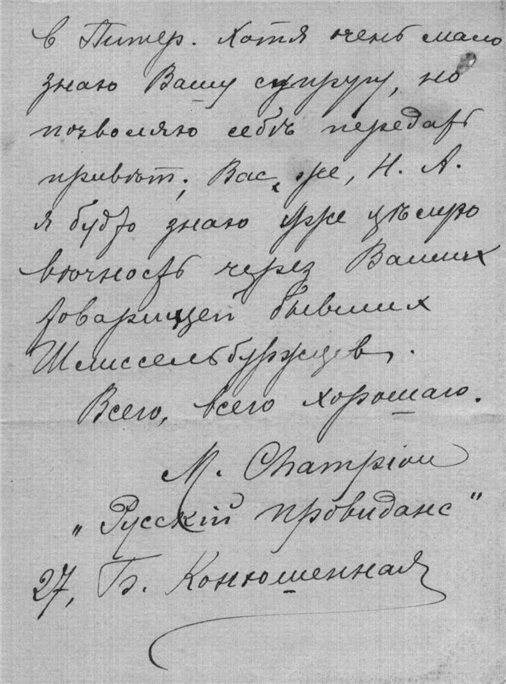 в Питер. Хотя очень мало
знаю Вашу супругу, но
позволяю себѣ передать
привѣт; Вас же, Н. А.
я будто знаю уже цѣлую
вѣчность через Ваших
товарищей бывших
Шлиссельбуржцев.
Всего, всего хорошаго.
M. Champion
„Русскiй провиданс"
27, Б. Конюшенная